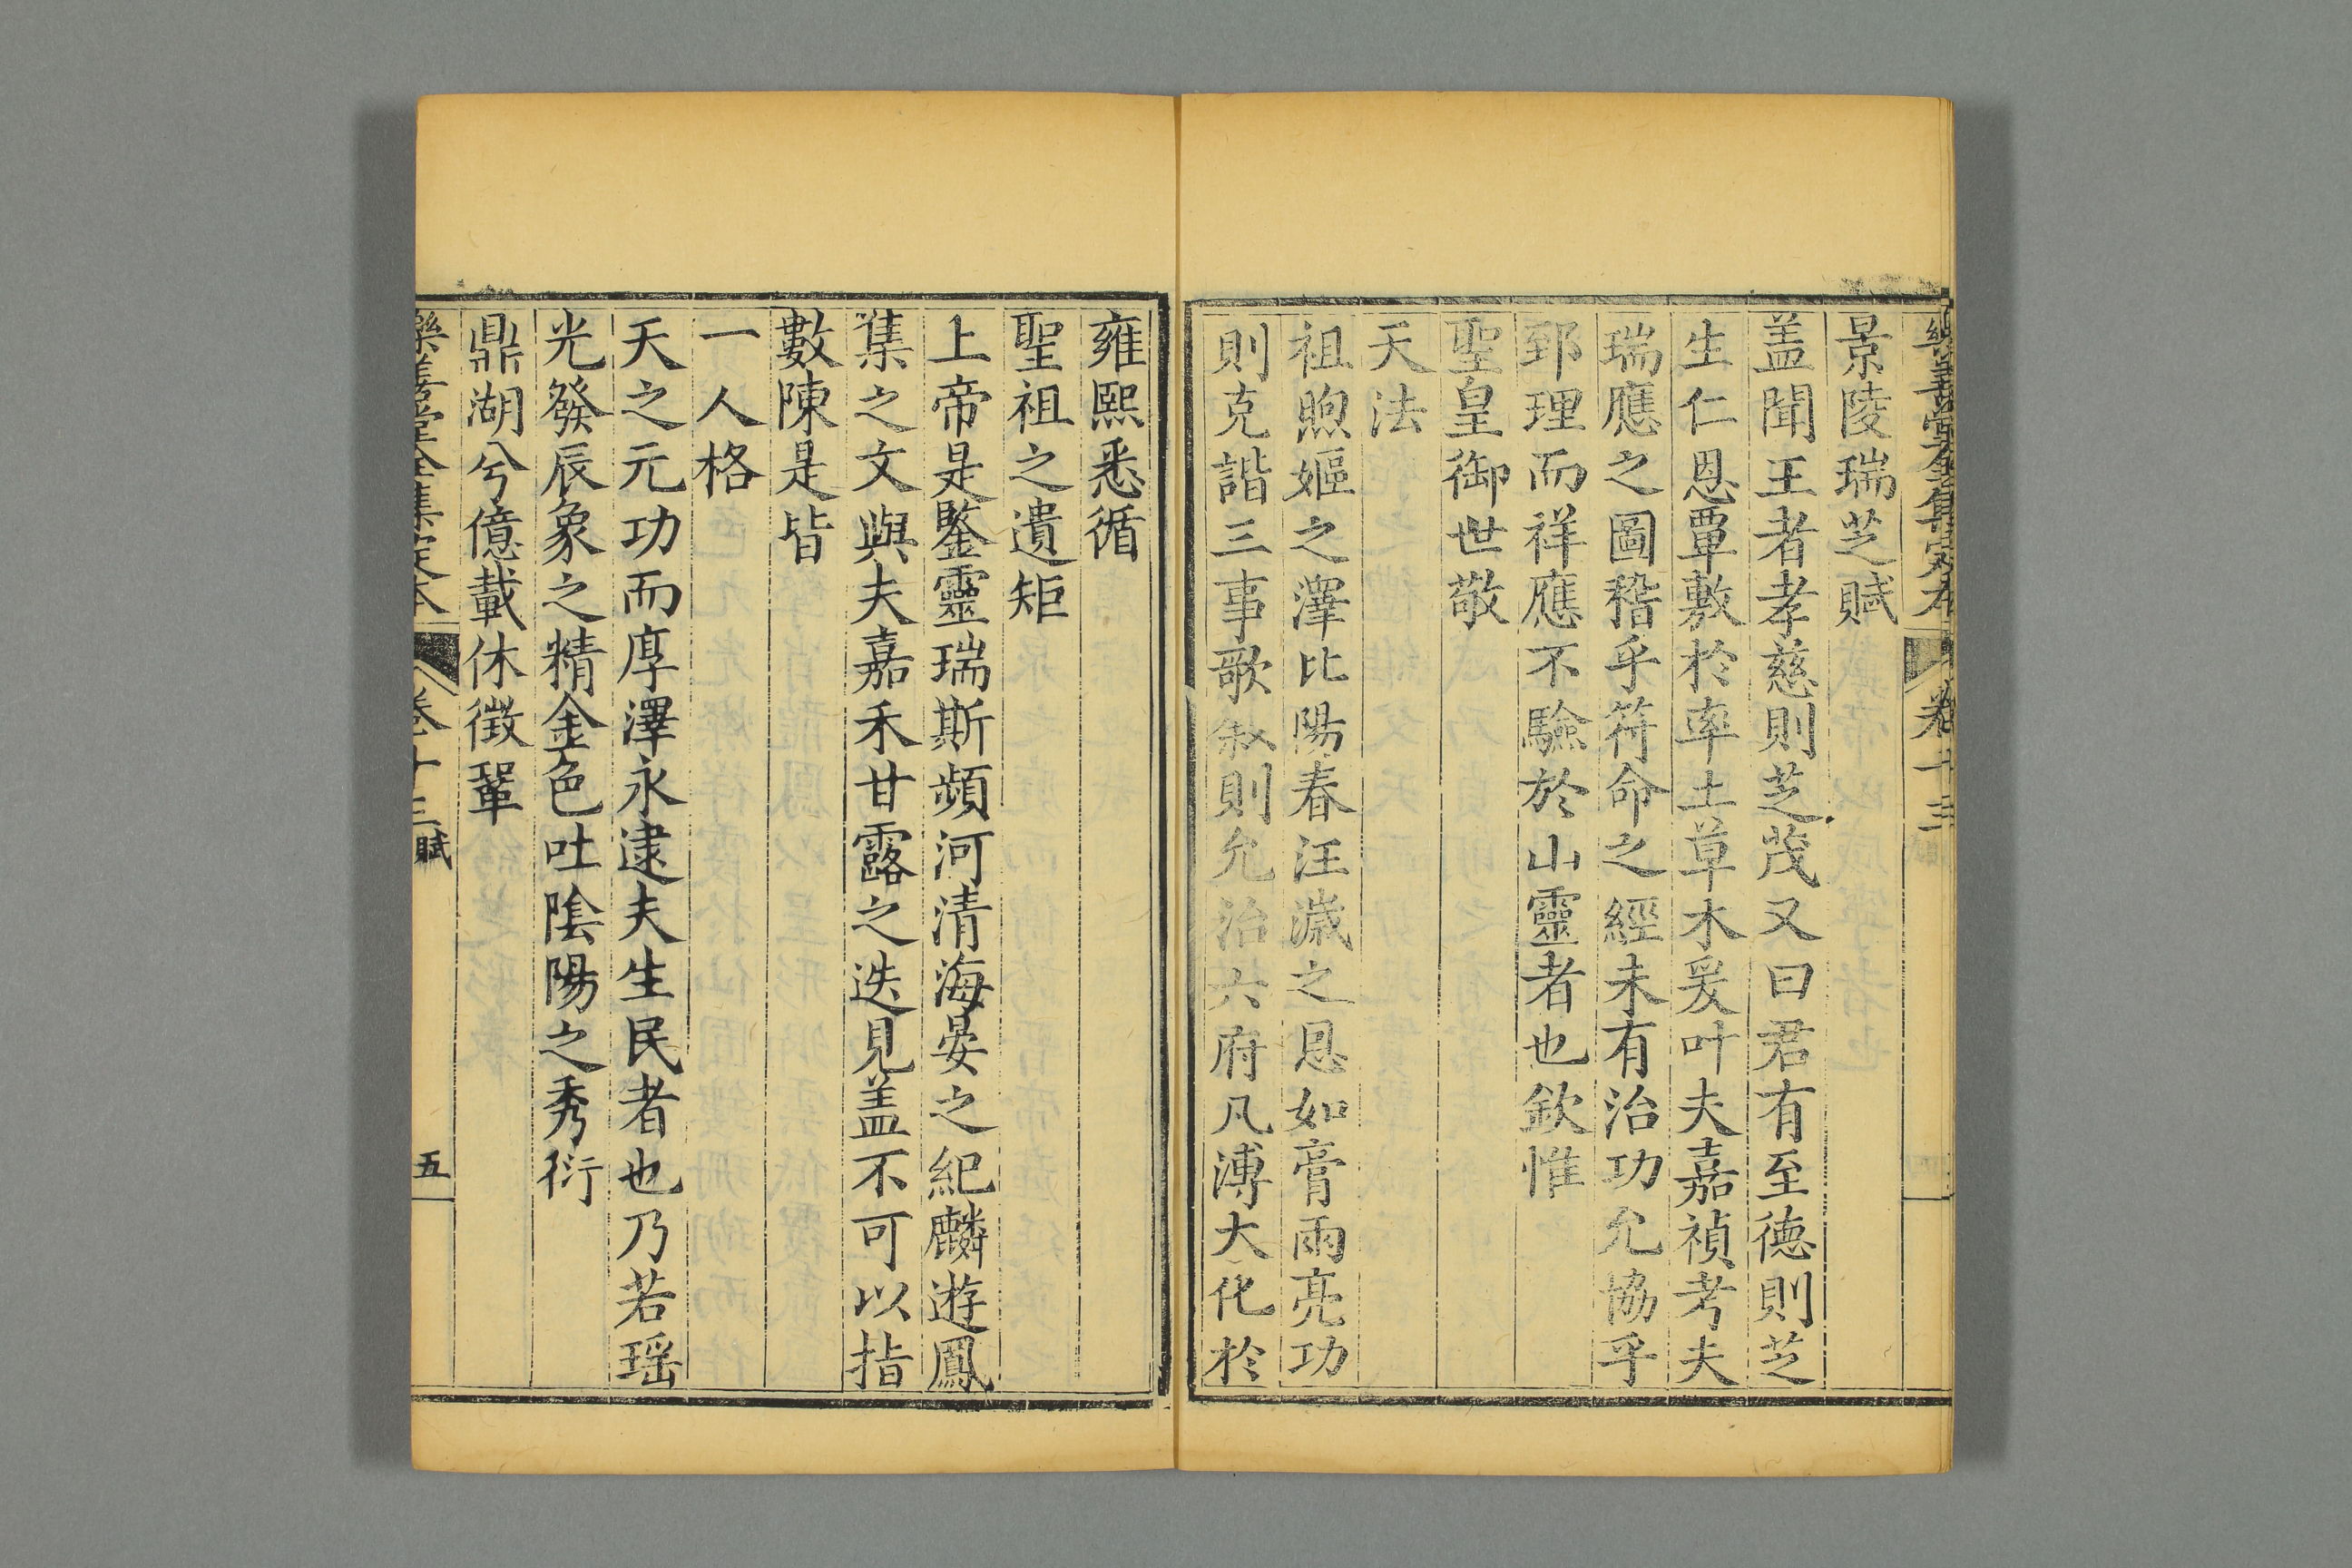 樂善堂全集定本 卷十三
景陵瑞芝賦
盖聞王者孝慈則芝茂又曰君有至德則芝
生仁恩覃敷於率土草木爰叶夫嘉禎考夫
瑞應之圖稽乎符命之經未有治功允協乎
郅理而祥應不驗於山靈者也欽惟
聖皇御世敬
天法
祖煦嫗之澤比陽春汪濊之恩如膏雨亮功
則克諧三事歌敘則允治六府凡溥大化於
雍熙悉循
聖祖之遺矩
上帝是鑒靈瑞斯蘋河清海晏之紀麟遊鳳
集之文與夫嘉禾甘露之迭見盖不可以指
數陳是皆
一人格
天之元功而厚澤永逮夫生民者也乃若瑶
光發辰象之精金色吐陰陽之秀衍
鼎湖兮億載休徵鞏
樂善堂全集定本 卷十三 賦 五